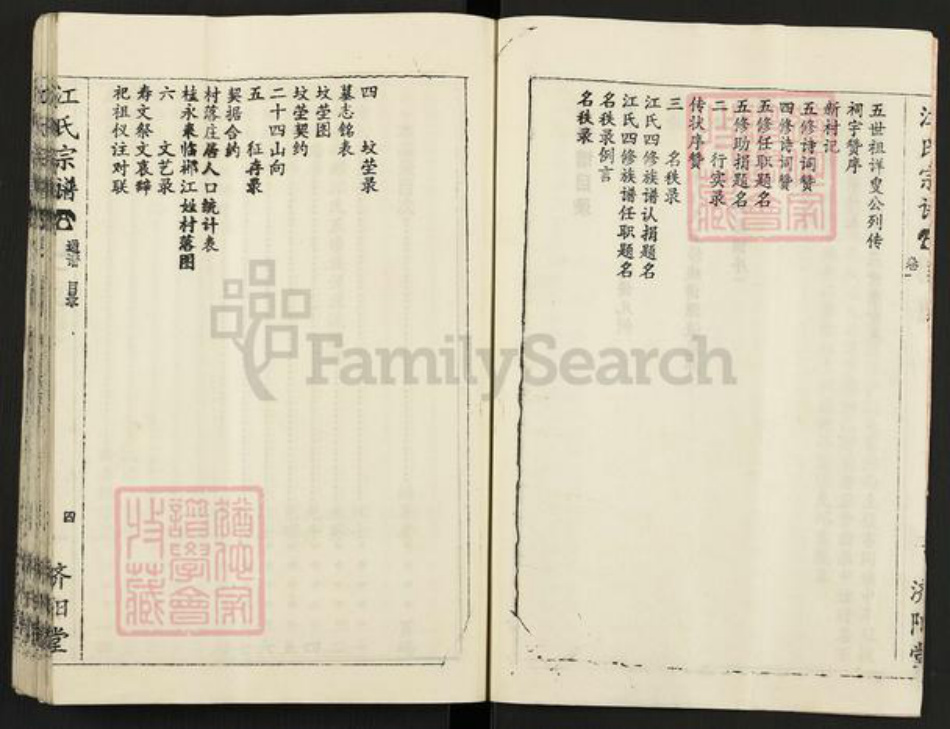 五世祖详叟公列传
祠宇赞序
新村记
五修诗词赞
四修诗词赞
五修任职题名
五修助捐题名
二 行实录
传状序赞
三 名秩录
江氏四修族谱认捐题名
江氏四修族谱任职题名
名秩录例言
名秩录
四 坟茔录
墓志铭表
坟茔图
坟茔契约
二十四山向
五 征存录
契据合约
村落庄居人口统计表
桂永来临郴江姓村落图
六 文艺录
寿文祭文哀辞
祀祖仪注对联
江氏宗谱
通谱 目录
四
济阳堂
FamilySearch